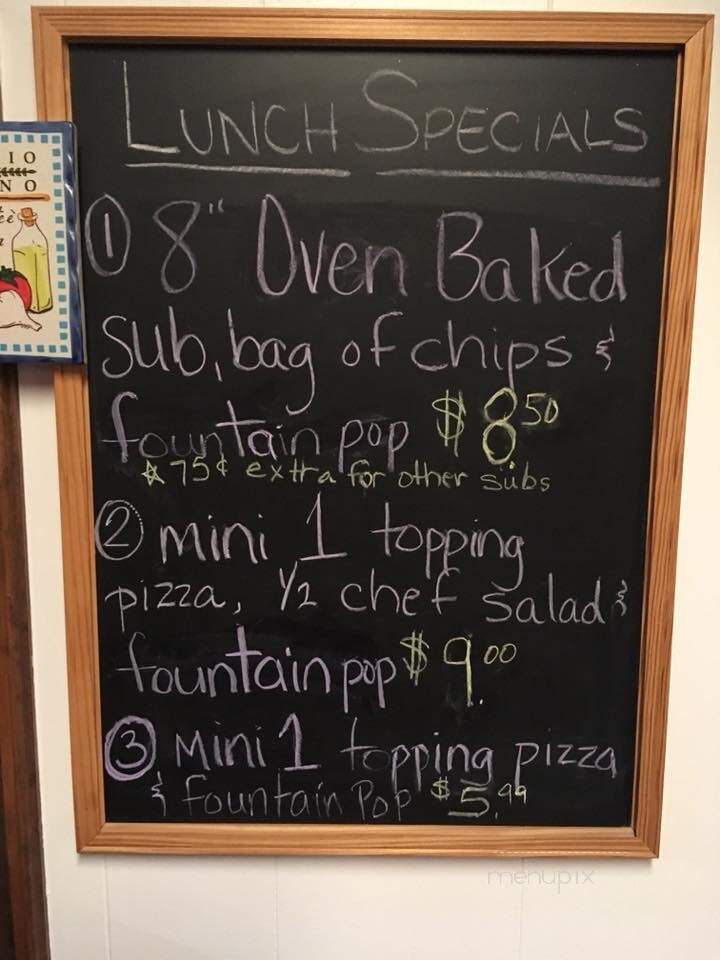 LUNCH SPECIALS
① 8" Oven Baked
sub, bag of chips &
fountain pop $8.50
☆ 75¢ extra for other subs
② mini 1 topping
pizza, 1/2 chef salad &
fountain pop $9.00
③ Mini 1 topping pizza
& fountain Pop $5.99
IO
NO
menupix